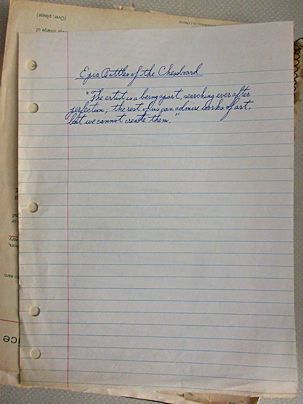 (Over, please)
Epic Battles of the Chessboard
"The artist is a being apart, searching ever after
perfection; the rest of us can admire works of art,
but we cannot create them."
ice